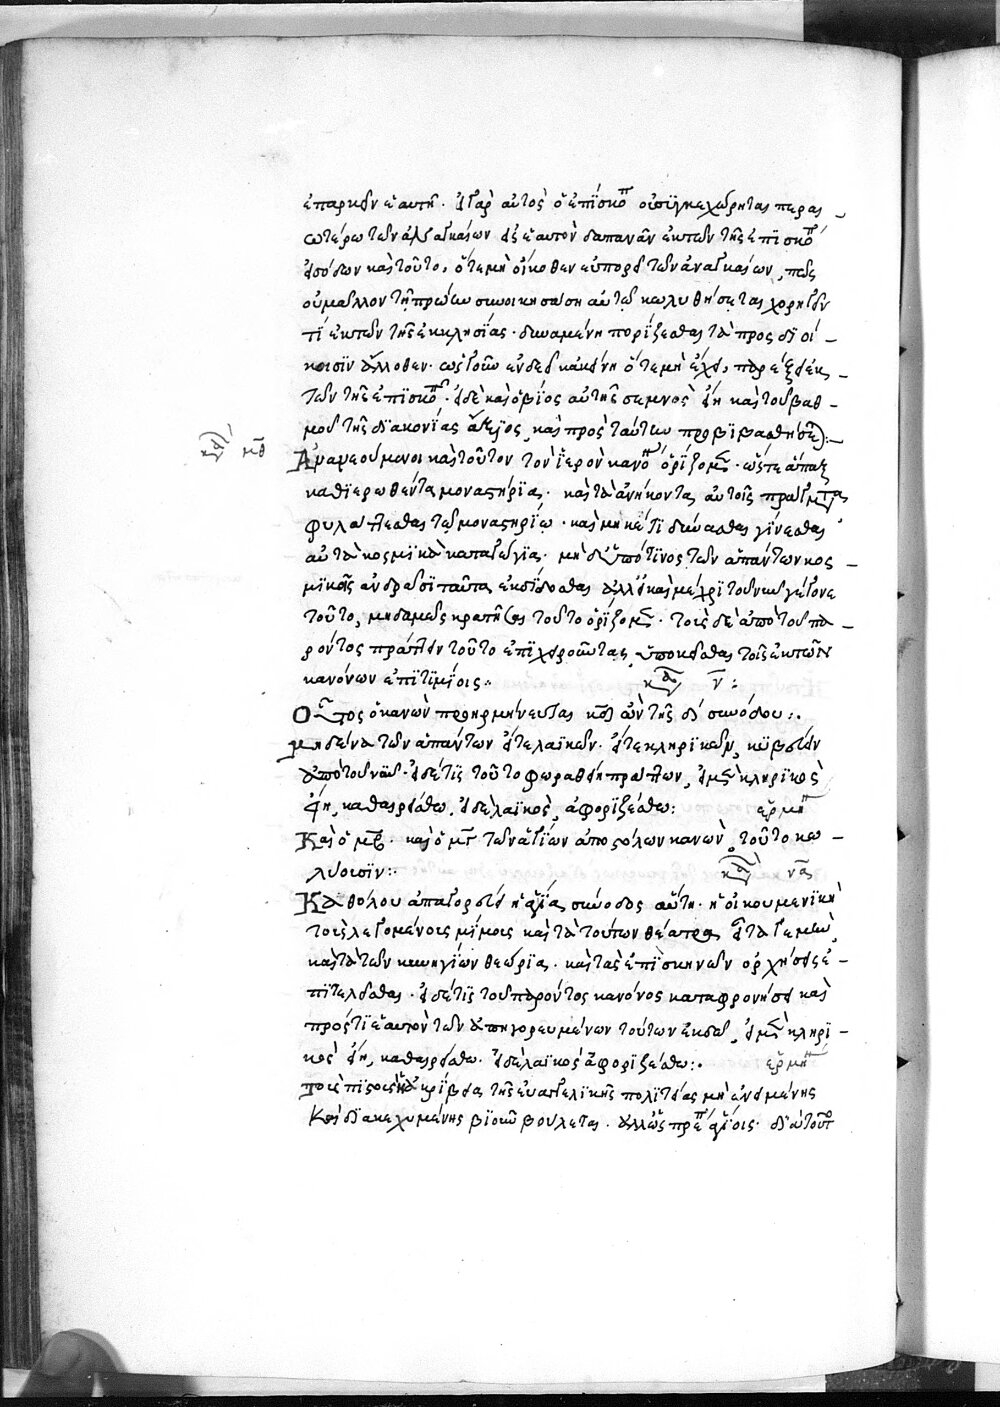 ἐπαρκεῖν ἑαυτῇ. εἰ γὰρ αὐτὸς ὁ ἐπίσκοπ οὐ συγκεχώρηται περαι
ωτέρω τῶν ἀναγκαίων εἰς ἑαυτὸν δαπανᾶν ἐκ τῶν τῆς ἐπισκοπ
εἰσόδων καὶ τοῦτο, ὅτε μὴ οἴκοθεν εὐπορεῖ τῶν ἀναγκαίων, πῶς
οὐ μᾶλλον τῇ πρώην συνοικησάσῃ αὐτῷ κωλυθήσεται χορηγεῖν
τί ἐκ τῶν τῆς ἐκκλησίας. δυναμένη πορίζεσθαι τὰ πρὸς διοί
κησιν ἄλλοθεν. ὡς γοῦν ἐνδεεῖ κἀκείνη ὅτε μὴ ἔχει, παρέξει ἐκ
τῶν τῆς ἐπισκοπ. εἰ δὲ καὶ ὁ βίος αὐτῆς σεμνὸς εἴη καὶ τοῦ βαθ
μοῦ τῆς διακονίας ἄξιος, καὶ πρὸς ταύτην προβιβασθήσε:
καν μθ
Ἀνανεούμενοι καὶ τοῦτον τὸν ἱερὸν κανον ὁρίζομεν. ὥστε ἅπαξ
καθιερωθέντα μοναστήρια. καὶ τὰ ἀνήκοντα αὐτοῖς πράγματα
φυλάττεσθαι τῷ μοναστηρίῳ. καὶ μηκέτι δύνασθαι γίνεσθαι
αὐτὰ κοσμικὰ καταγώγια. μηδὲ ὑπό τινος τῶν ἁπάντων κοσ
μικοῖς ἀνδράσι ταῦτα ἐκδίδοσθαι ἀλλ' εἰ καὶ μέχρι τοῦ νῦν γέγονε
τοῦτο, μηδαμῶς κρατῆσαι τοῦτο ὁρίζομεν. τοὺς δὲ ἀπὸ τοῦ πα
ρόντος πράττειν τοῦτο ἐπιχειροῦντας, ὑποκεῖσθαι τοῖς ἐκ τῶν
κανόνων ἐπιτιμίοις: καν ν:
Οὗτος ὁ κανὼν προηρμήνευται κδ ὢν τῆς δ' συνόδου:
Μηδένα τῶν ἁπάντων εἴτε λαϊκῶν. εἴτε κληρικῶν, κυβεύειν
ἀπὸ τοῦ νῦν. εἰ δέ τις τοῦτο φωραθείη πράττων, εἰ μὲν κληρικὸς
εἴη, καθαιρείσθω. εἰ δὲ λαϊκὸς, ἀφοριζέσθω: ἑρμη
Καὶ ὁ μβ. καὶ ὁ μγ τῶν ἁγίων ἀποστόλων κανὼν, τοῦτο κω
λύουσιν: καν να
Καθόλου ἀπαγορεύει ἡ ἁγία σύνοδος αὕτη. ἡ οἰκουμενικὴ
τοὺς λεγομένους μίμους καὶ τὰ τούτων θέατρα εἶτα γε μὴν,
καὶ τὰ τῶν κυνηγίων θεώρια. καὶ τὰς ἐπὶ σκηνῶν ὀρχήσεις ἐ
πιτελεῖσθαι. εἰ δέ τις τοῦ παρόντος κανόνος καταφρονήσει καὶ
πρός τι ἑαυτὸν τῶν ἀπηγορευμένων τούτων ἐκδῷ, εἰ μὲν κληρι
κὸς εἴη, καθαιρείσθω. εἰ δὲ λαϊκὸς ἀφοριζέσθω: ἑρμη
Τοὺς πιστοὺς ἡ ἀκρίβεια τῆς εὐαγγελικῆς πολιτείας μὴ ἀνειμένως
καὶ διακεχυμένης βιοῦν βούλεται. ἀλλ' ὡς πρέπ ἁγίοις. διὰ τοῦτ